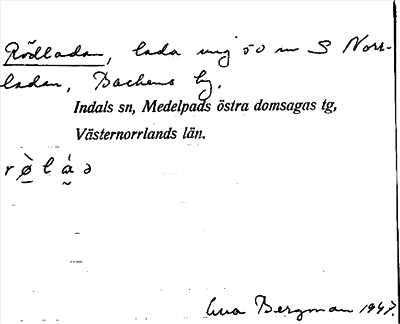 Rödladan, lada ung 50 m S Norr-
ladan, Backens by.
Indals sn, Medelpads östra domsagas tg,
Västernorrlands län.
r ø̠̀ l á̰ ə
Eva Bergman 1947.